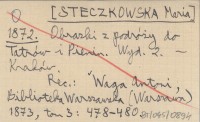 O [STECZKOWSKA Maria]
1872. Obrazki z podróży do
Tatrów i Pienin. Wyd. 2. -
Kraków
Rec.: Waga Antoni,
Biblioteka Warszawska (Warszawa)
1873, tom 3: 478-480